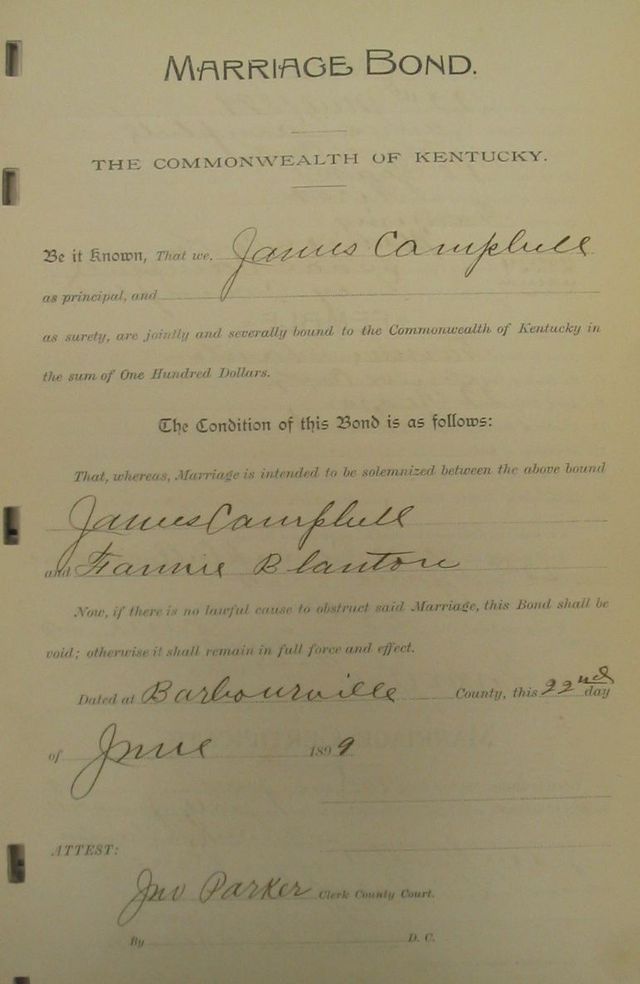 MARRIAGE BOND.
THE COMMONWEALTH OF KENTUCKY.
Be it Known, That we, James Campbell
as principal, and
as surety, are jointly and severally bound to the Commonwealth of Kentucky in
the sum of One Hundred Dollars.
The Condition of this Bond is as follows:
That, whereas, Marriage is intended to be solemnized between the above bound
James Campbell
and Fannie Blanton
Now, if there is no lawful cause to obstruct said Marriage, this Bond shall be
void; otherwise it shall remain in full force and effect.
Dated at Barbourville County, this 22nd day
of June 1899
ATTEST:
Jno Parker Clerk County Court.
By D. C.